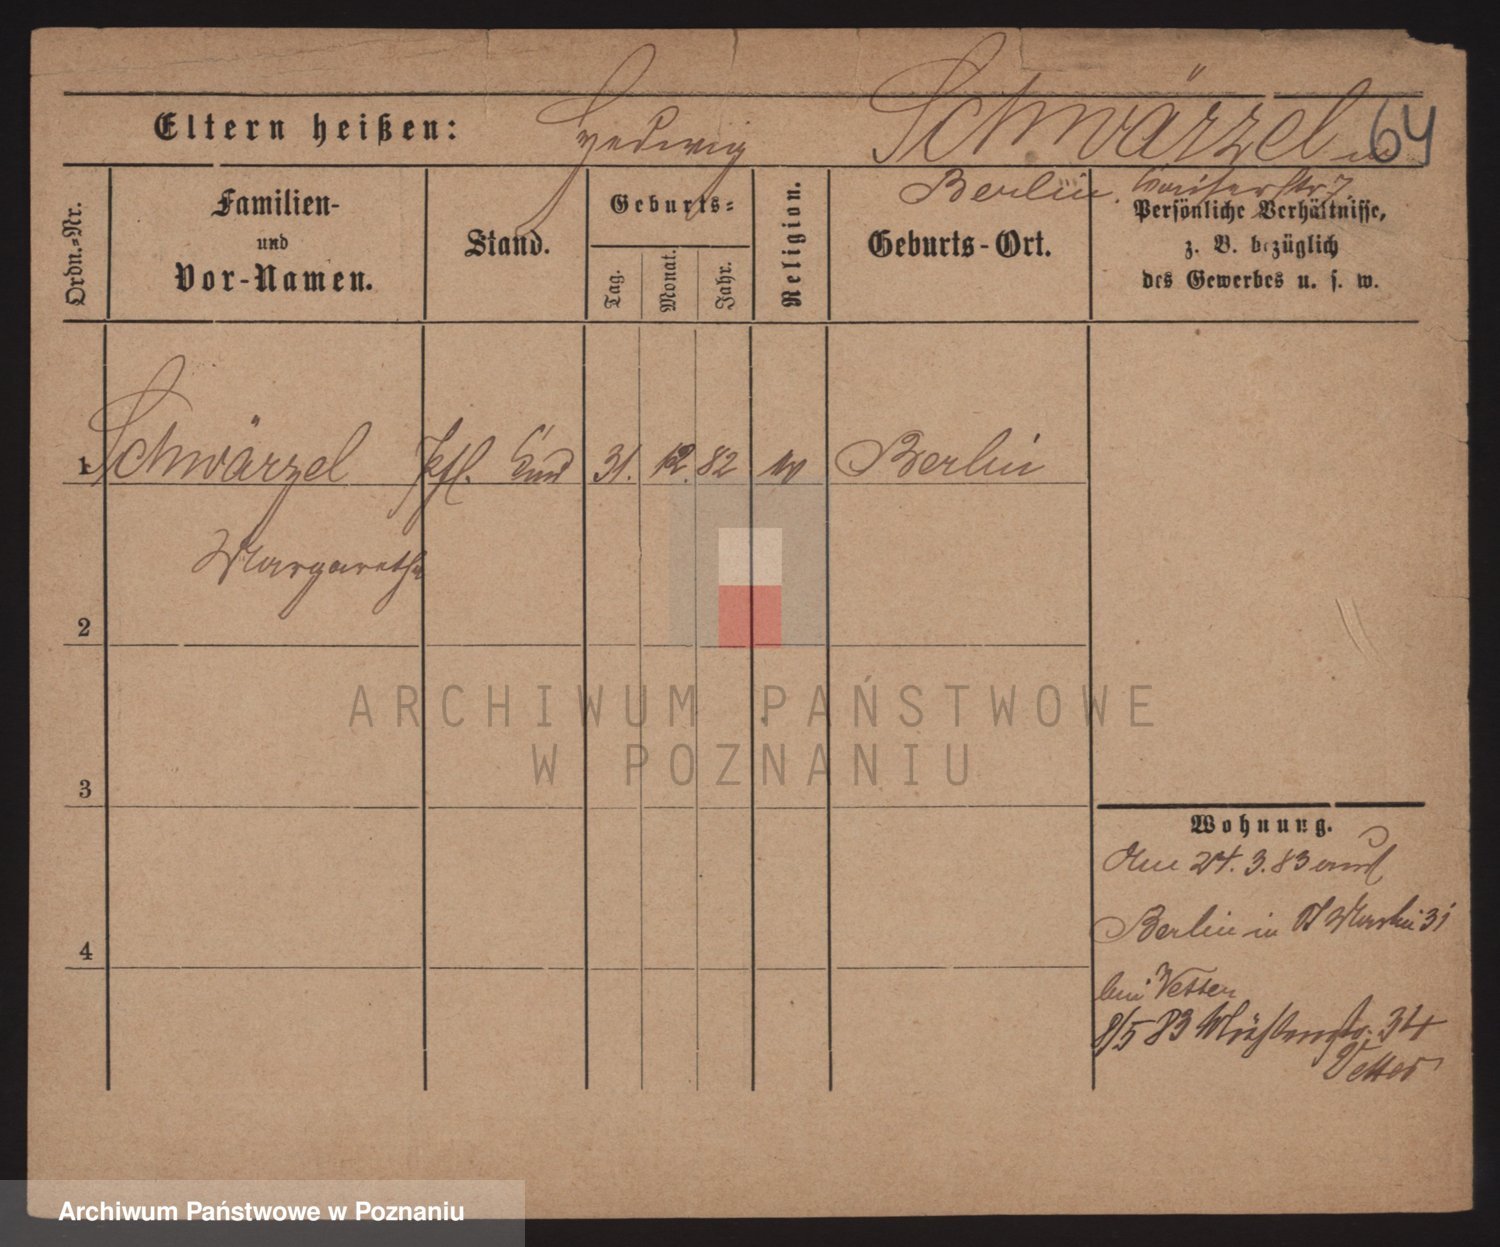 Eltern heißen: Hedwig Schwärzel in 64
Berlin,
Ordn.-Nr.
Familien-
und
Vor-Namen.
Stand.
Geburts-
Tag.
Monat.
Jahr.
Religion.
Geburts-Ort.
Persönliche Verhältnisse,
z. B. bezüglich
des Gewerbes u. s. w.
1 Schwärzel Pfl. Kind 31. 12. 82 Berlin
Margarethe
2
3
4
Wohnung.
24. 3. 83
Berlin in St Martin 31
bei Vetter
8/5 83 34
Vetter
ARCHIWUM PAŃSTWOWE
W POZNANIU
Archiwum Państwowe w Poznaniu